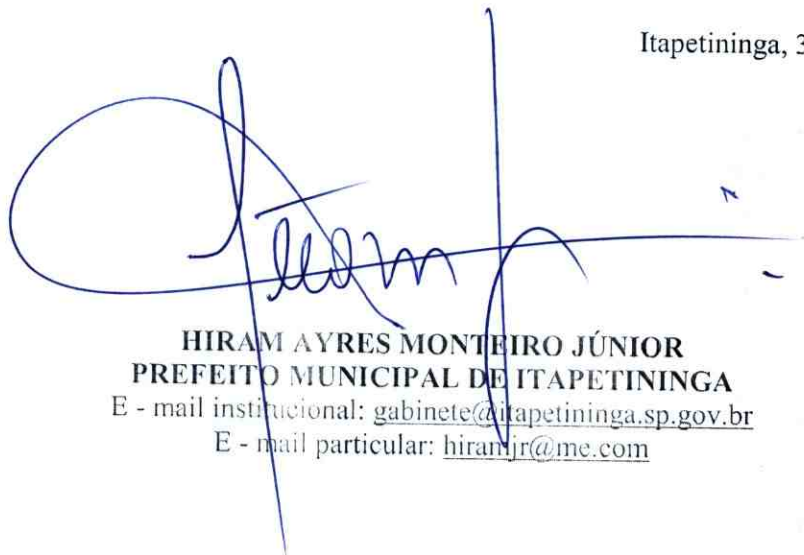 Itapetininga, 3
HIRAM AYRES MONTEIRO JÚNIOR
PREFEITO MUNICIPAL DE ITAPETININGA
E - mail institucional: gabinete@itapetininga.sp.gov.br
E - mail particular: hiramjr@me.com